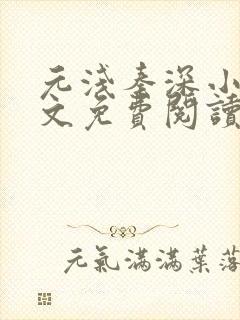 元淺奉深小
文免費閱讀
元氣滿滿葉落